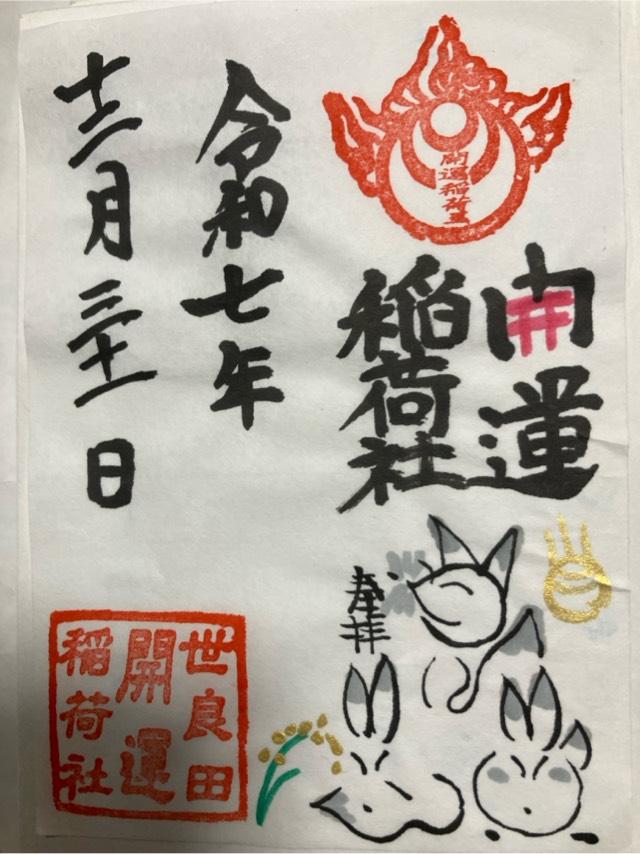 開運稲荷王
開運
稲荷社
奉拝
令和七年
十二月三十一日
世良田
開運
稲荷社